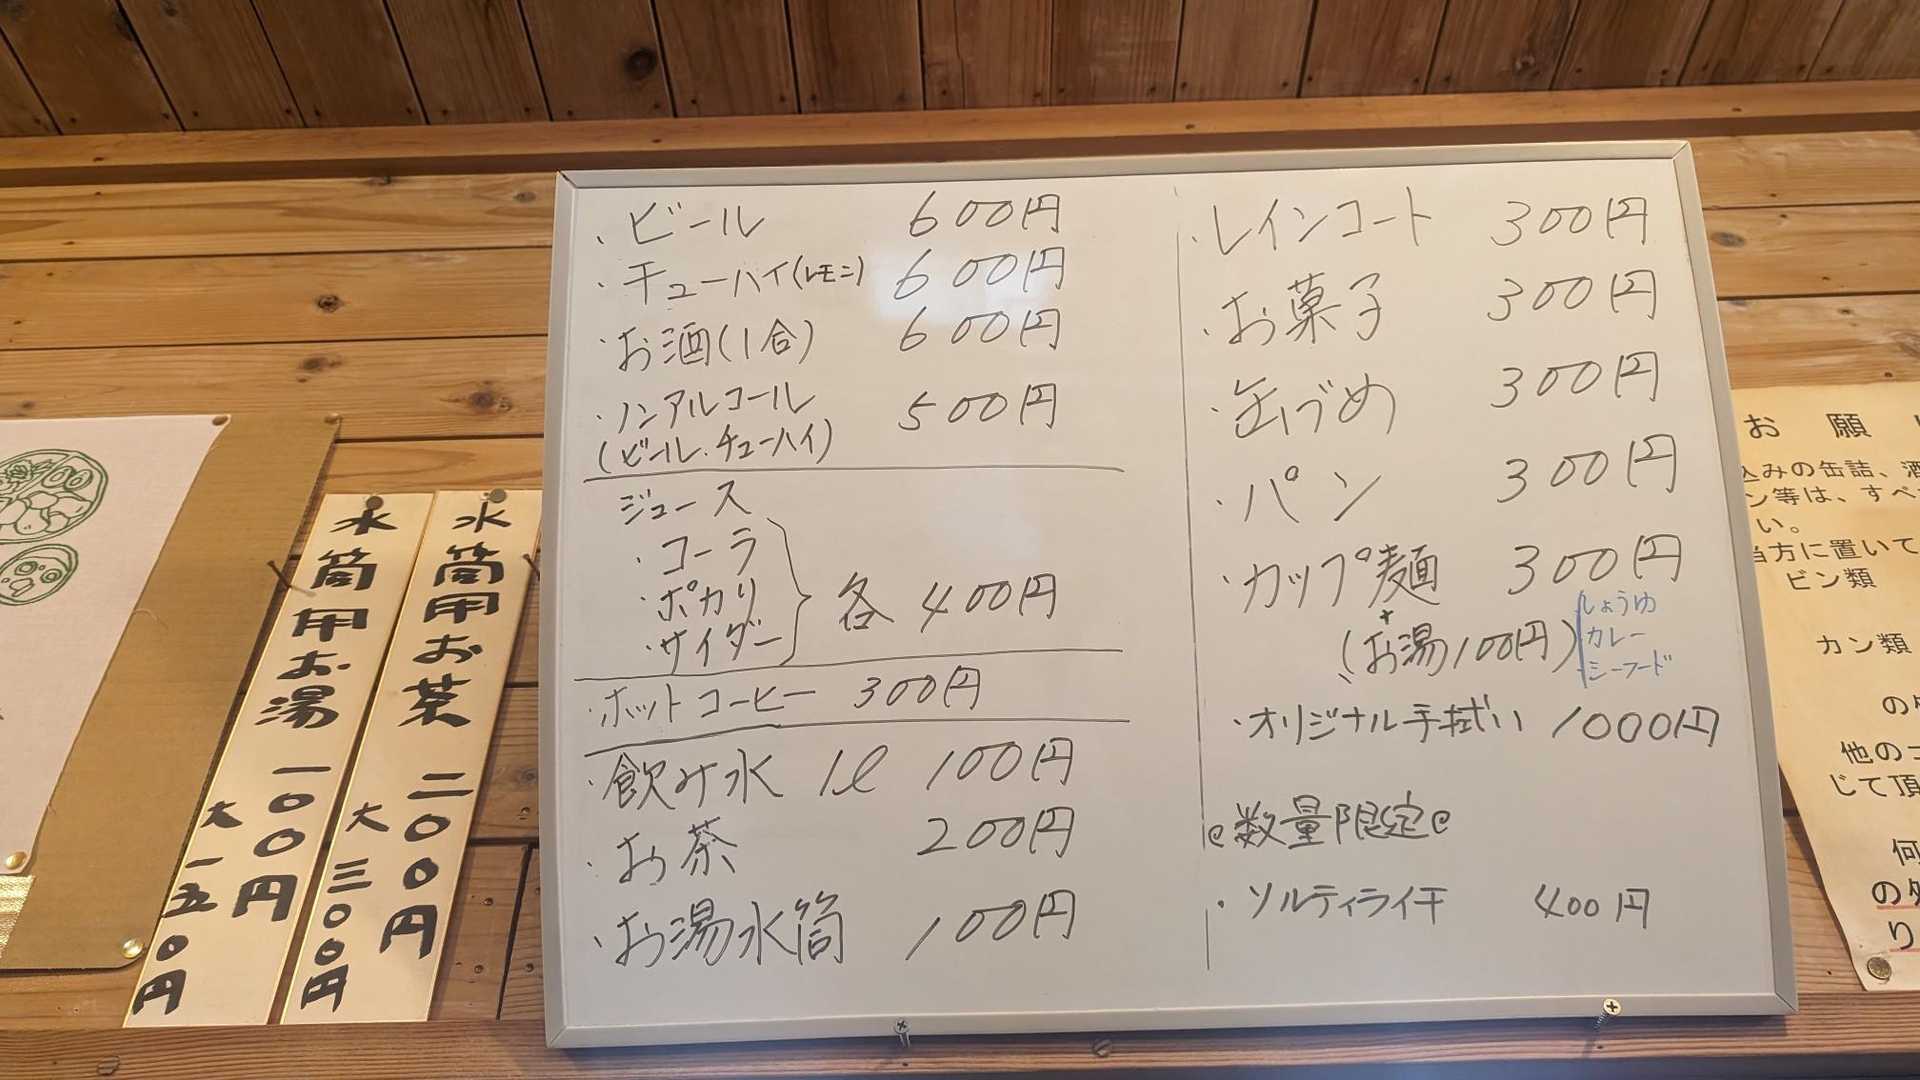 ・ビール 600円
・チューハイ(レモン) 600円
・お酒(1合) 600円
・ノンアルコール 500円
(ビール、チューハイ)
ジュース
・コーラ
・ポカリ
・サイダー
各 400円
・ホットコーヒー 300円
・飲み水 1ℓ 100円
・お茶 200円
・お湯水筒 100円
・レインコート 300円
・お菓子 300円
・缶づめ 300円
・パン 300円
・カップ麺 300円
+
(お湯100円)
しょうゆ
カレー
シーフード
・オリジナル手拭い 1000円
@数量限定@
・ソルティライチ 400円
水筒用お茶 二〇〇円
大 三〇〇円
水筒用お湯 一〇〇円
大 一五〇円
お願
込みの缶詰、酒
ン等は、すべ
い。
当方に置いて
ビン類
カン類
他の
じて頂
何